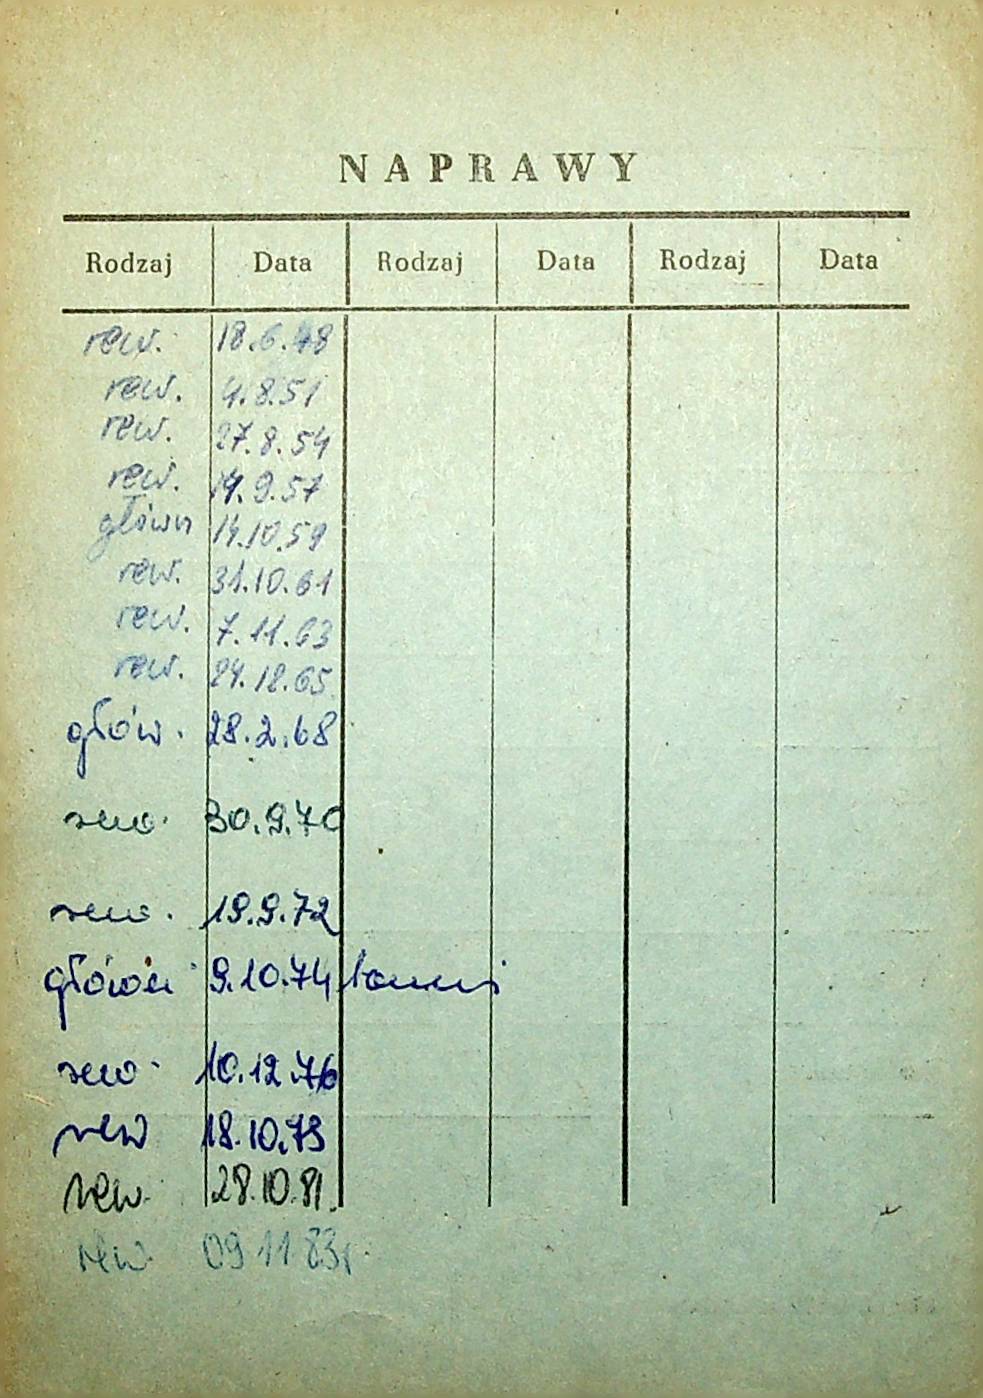 NAPRAWY
Rodzaj Data Rodzaj Data Rodzaj Data
rew. 18.6.48
rew. 4.8.51
rew. 27.8.54
rew. 14.9.57
główn 14.10.59
rew. 31.10.61
rew. 7.11.63
rew. 24.12.65
głów. 28.2.68
rew. 30.9.70
rew. 19.9.72
główn 9.10.74
rew. 10.12.76
rew 18.10.79
rew. 28.10.81.
rew. 09 11 83r.